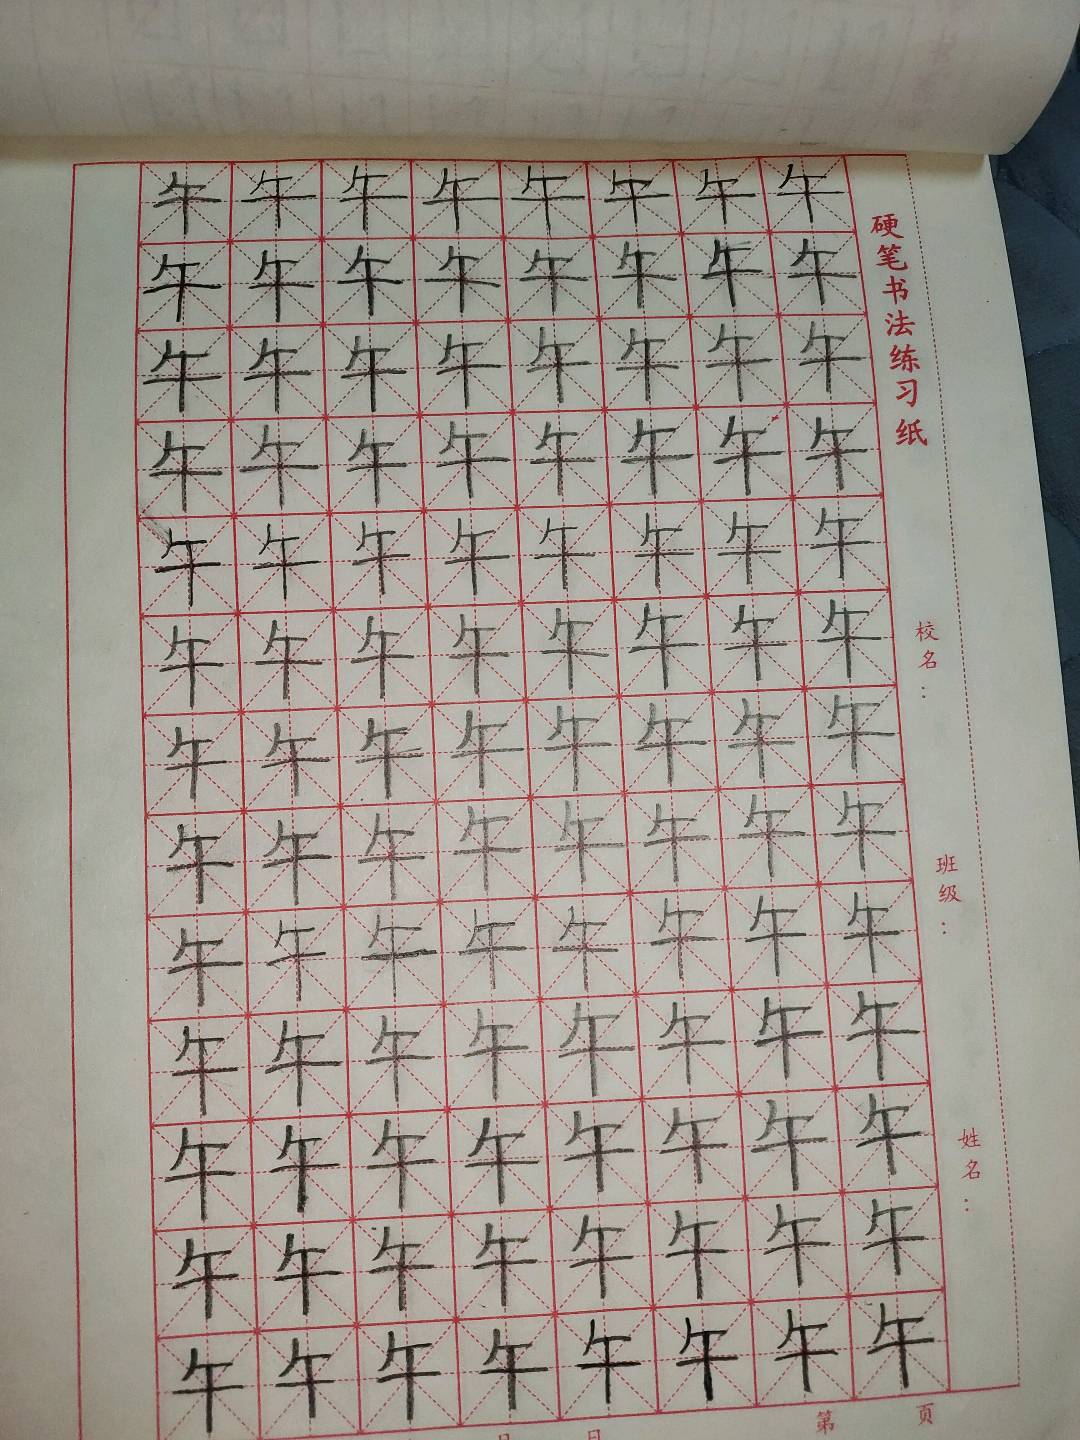 午午午午午午午午
午午午午午午午午
午午午午午午午午
午午午午午午午午
午午午午午午午午
午午午午午午午午
午午午午午午午午
午午午午午午午午
午午午午午午午午
午午午午午午午午
午午午午午午午午
午午午午午午午午
午午午午午午午午
硬笔书法练习纸
校名：
班级：
姓名：
月 日
第 页